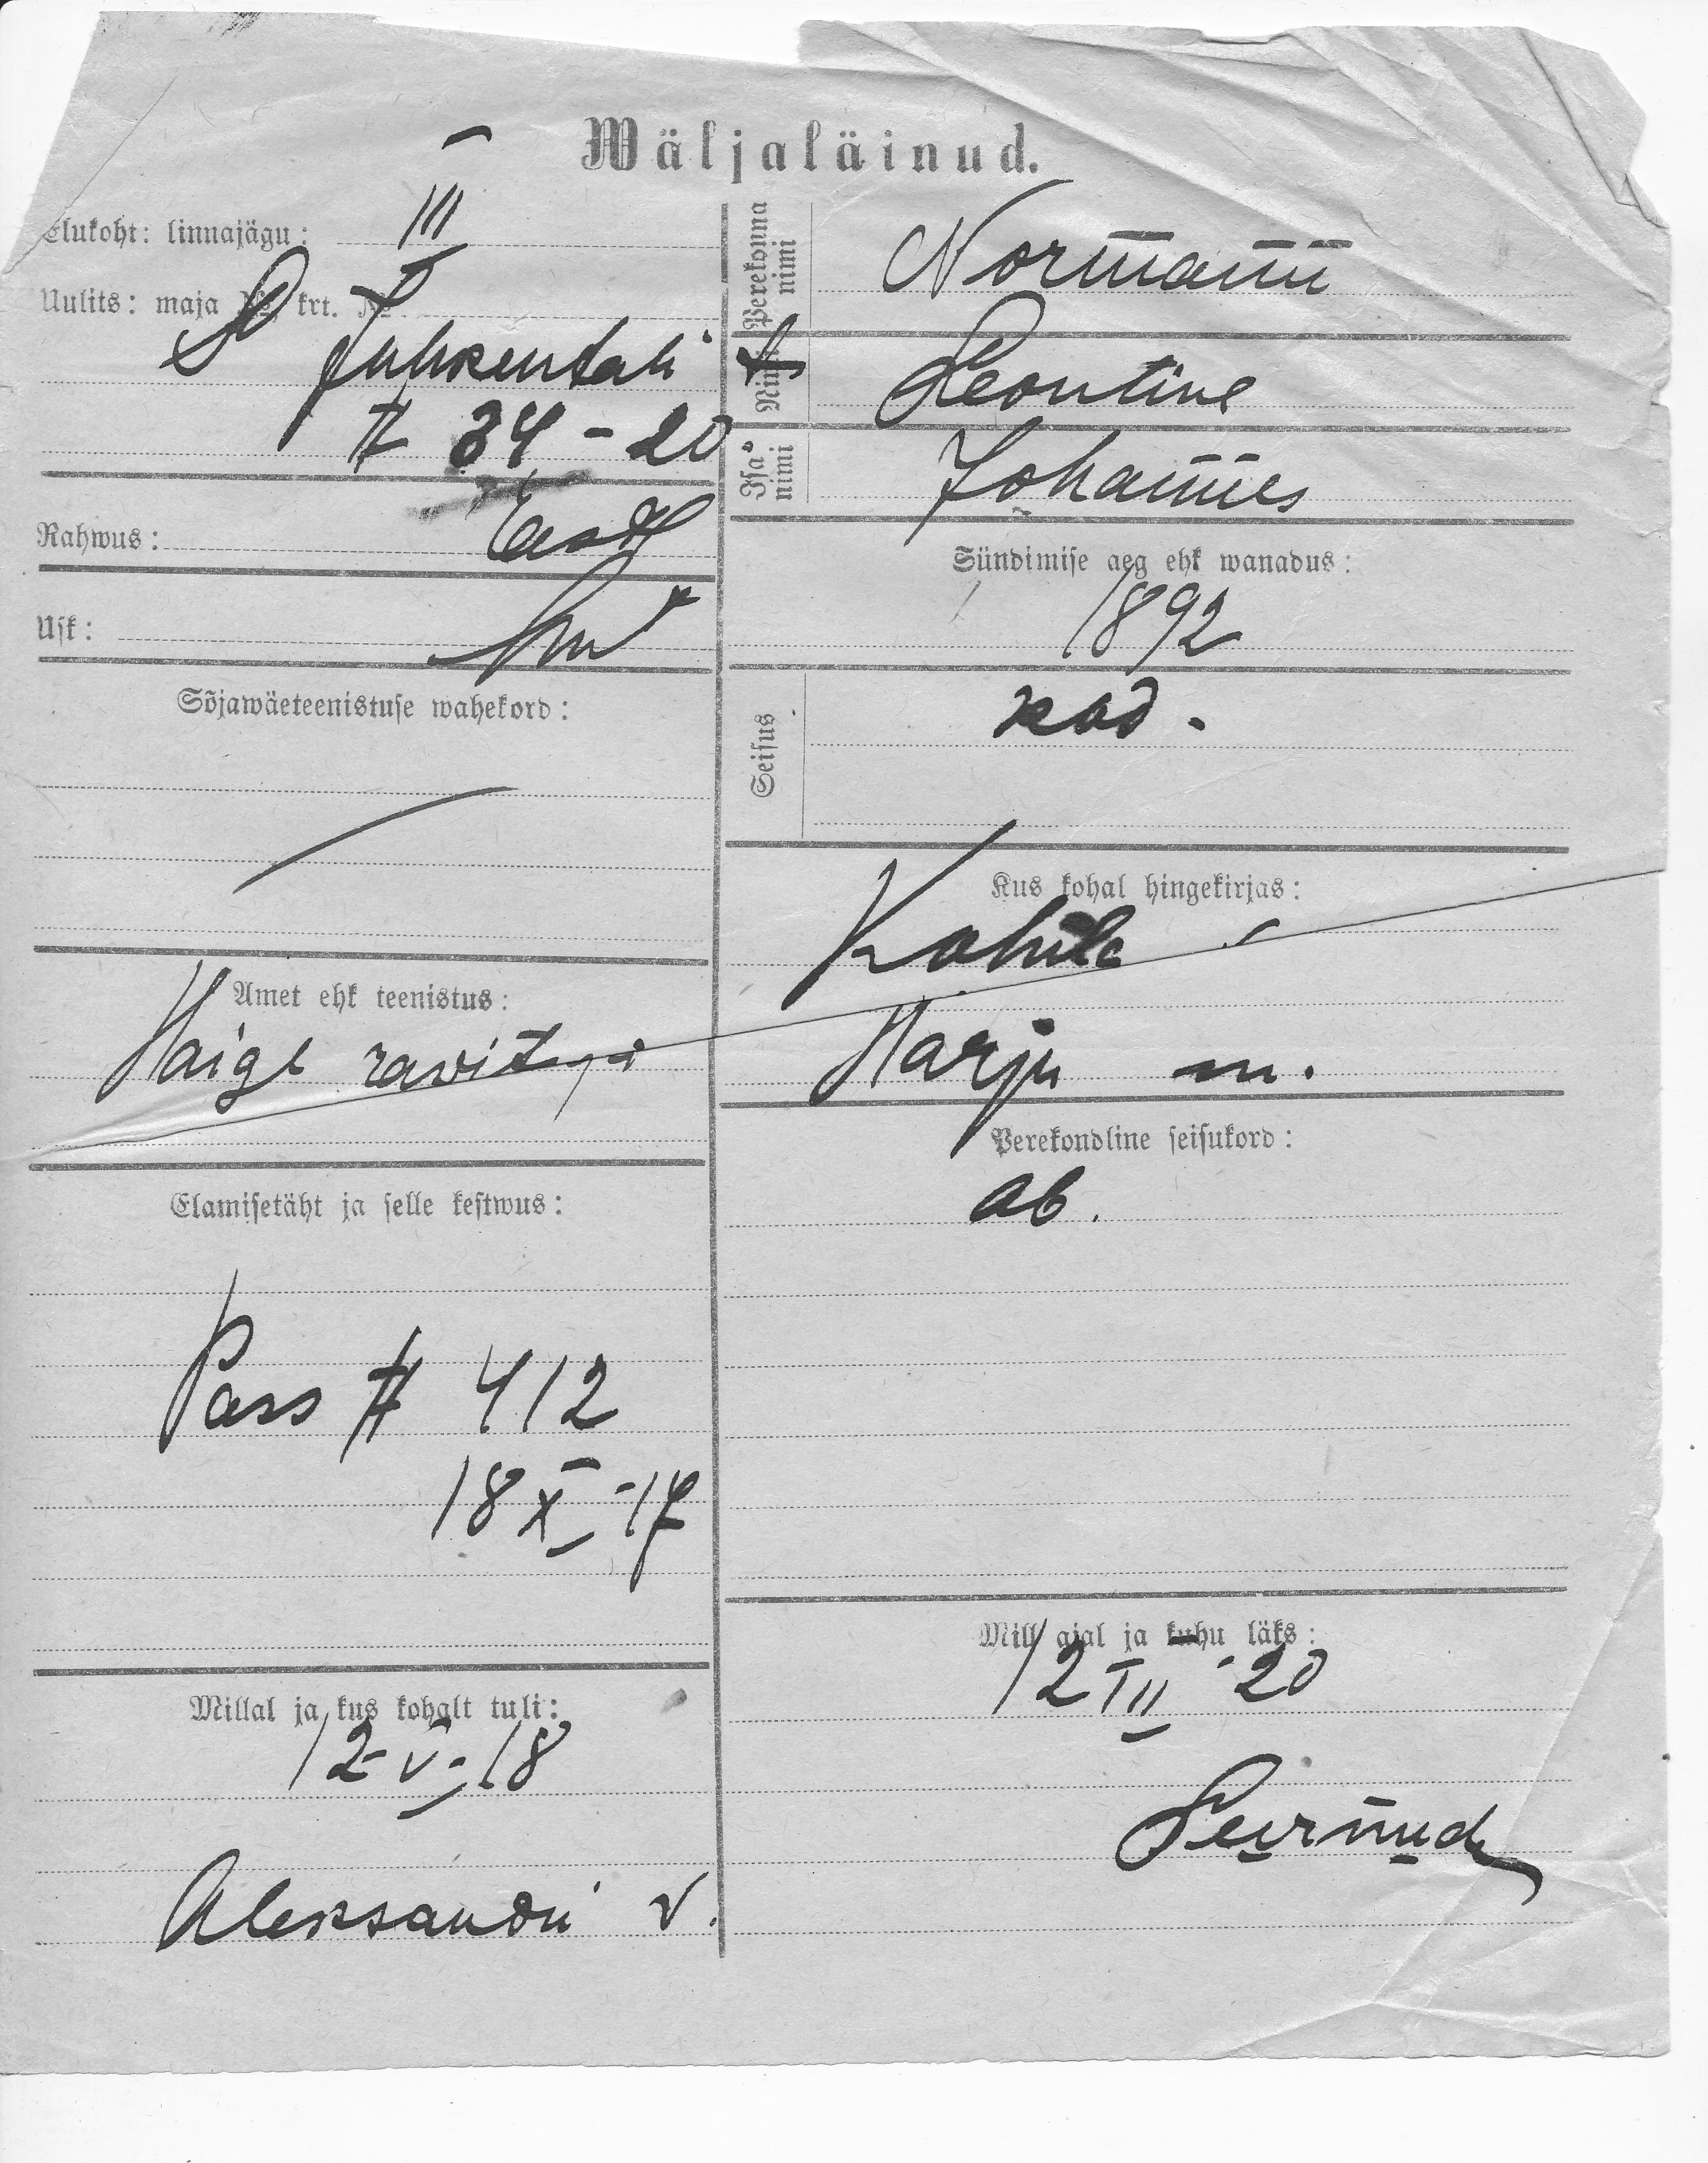 Wäljaläinud.
Elukoht: linnajägu: III
Uulits: maja № krt. №
S Juhkentali t
# 34 - 20
Rahwus: Eesti
Usk:
Sõjawäeteenistuse wahekord:
Amet ehk teenistus:
Haige ravitseja
Elamisetäht ja selle kestwus:
Pass # 412
18 X - 17
Millal ja kus kohalt tuli:
12 - V - 18
Aleksandri v.
Perekonna nimi
Normann
Nimi
Leontine
Isa nimi
Johannes
Sündimise aeg ehk wanadus:
1892
Seisus
kod.
Kus kohal hingekirjas:
Kohila
Harju m.
Perekondline seisukord:
ab.
Millal ajal ja kuhu läks:
12 III 20
Surnud